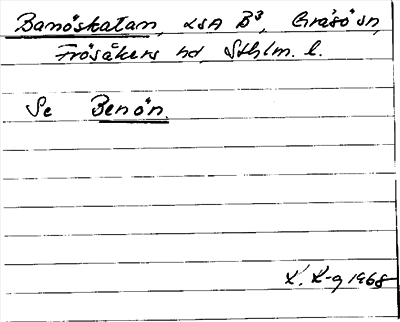 Banöskatan, LSA B³, Gräsö sn,
Frösåkers hd, Sthlm. l.
Se Benön.
L. L-g 1968